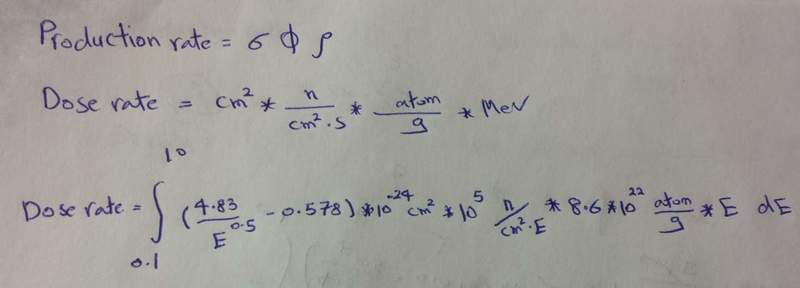 Production rate = σ Φ ρ
Dose rate = cm² * n/(cm².s) * atom/g * MeV
Dose rate = ∫₀.₁¹⁰ (4.83/E^0.5 - 0.578) * 10^-24 cm² * 10^5 n/(cm².E) * 8.6*10^22 atom/g * E dE